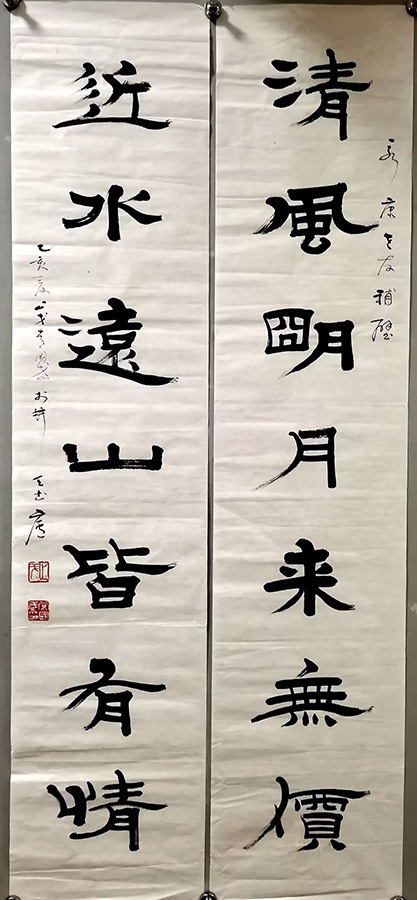 清風朙月来無價
近水遠山皆有情
康老友補壁
乙亥夏